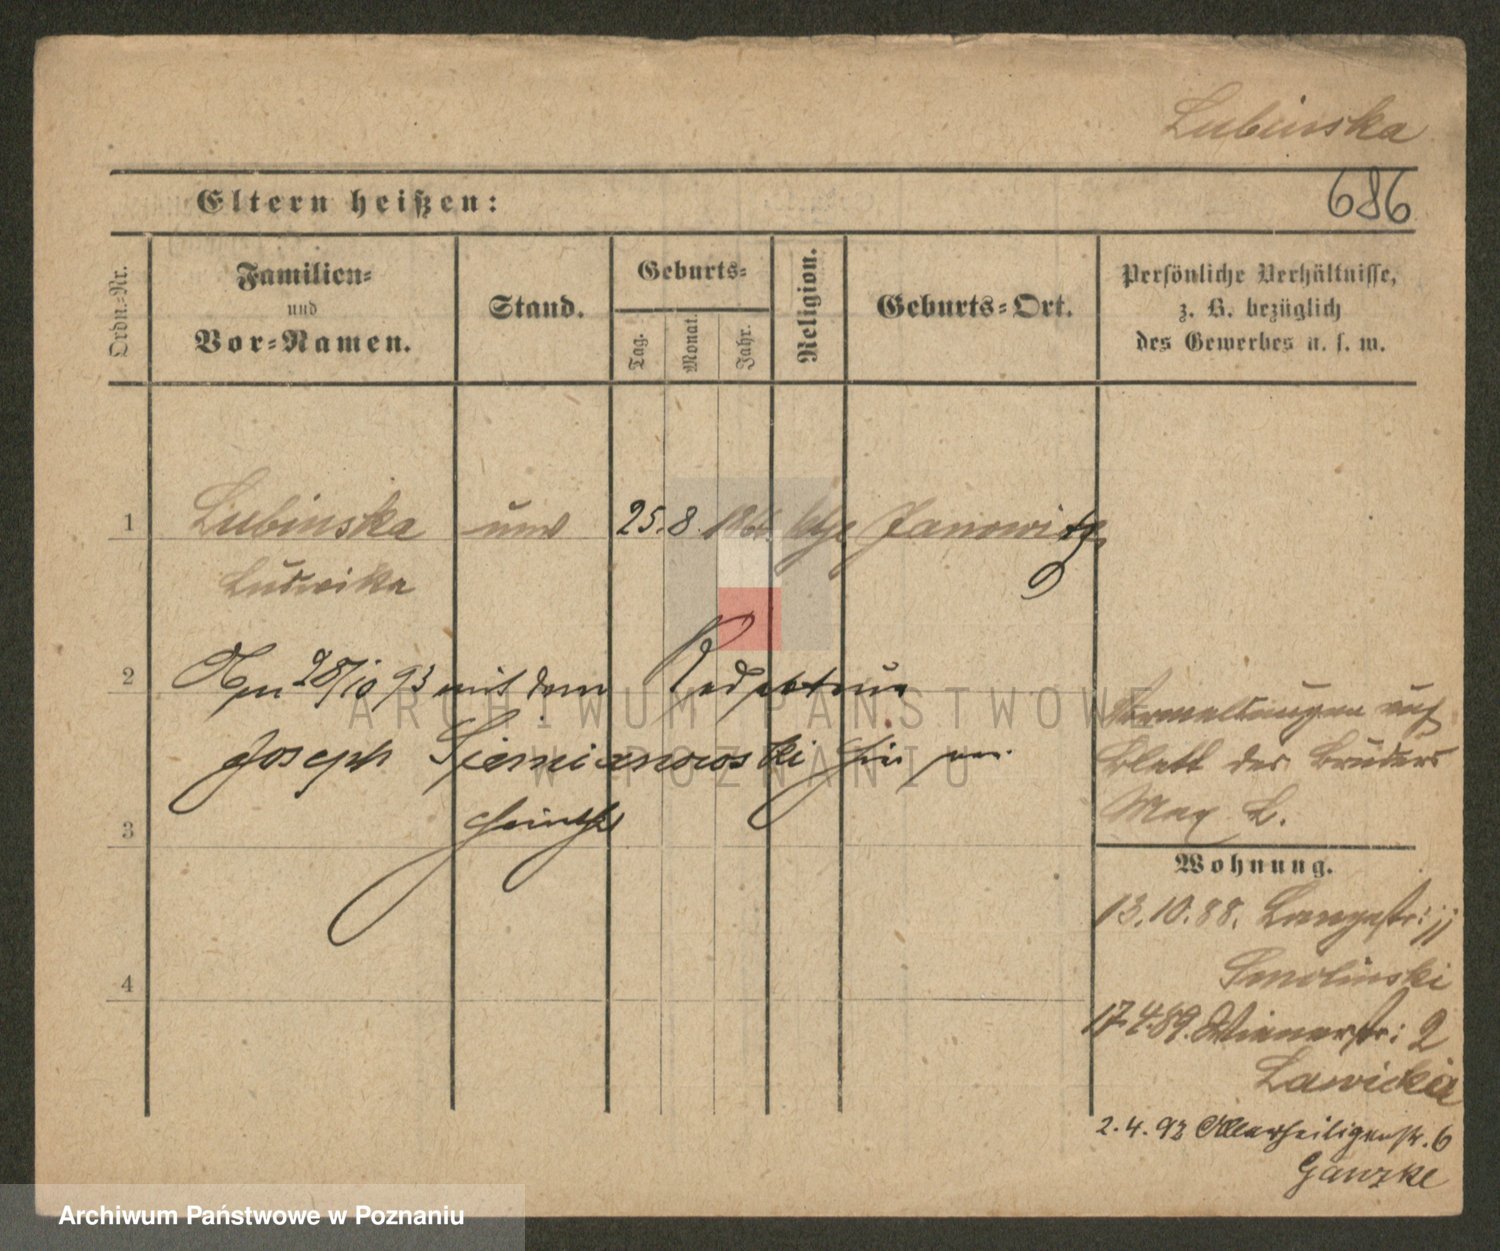 Lubinska
686
Eltern heißen:
Ordn.-Nr.
Familien-
und
Vor-Namen.
Stand.
Geburts-
Tag.
Monat.
Jahr.
Religion.
Geburts-Ort.
Persönliche Verhältnisse,
z. B. bezüglich
des Gewerbes u. s. w.
1 Lubinska unv 25. 8. Janowitz
Ludwika
2 28/10 93 mit dem Redakteur
Joseph Siemianowski hier
3
4
auf
Blatt des Bruders
Max L.
Wohnung.
13.10.88. Langestr: 11
Smolinski
17.4.89. Wienerstr: 2
Lawicka
2.4.93 Allerheiligenstr. 6
Ganzke
ARCHIWUM PAŃSTWOWE
W POZNANIU
Archiwum Państwowe w Poznaniu